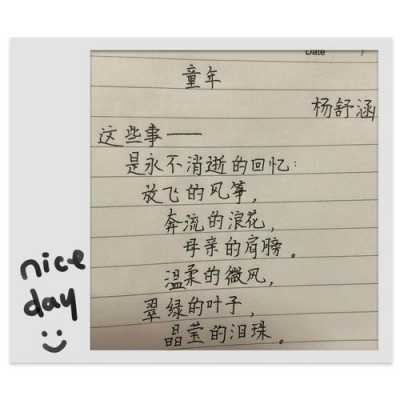 Date
童年
杨舒涵
这些事——
是永不消逝的回忆：
放飞的风筝，
奔流的浪花，
母亲的肩膀。
温柔的微风，
翠绿的叶子，
晶莹的泪珠。
nice
day